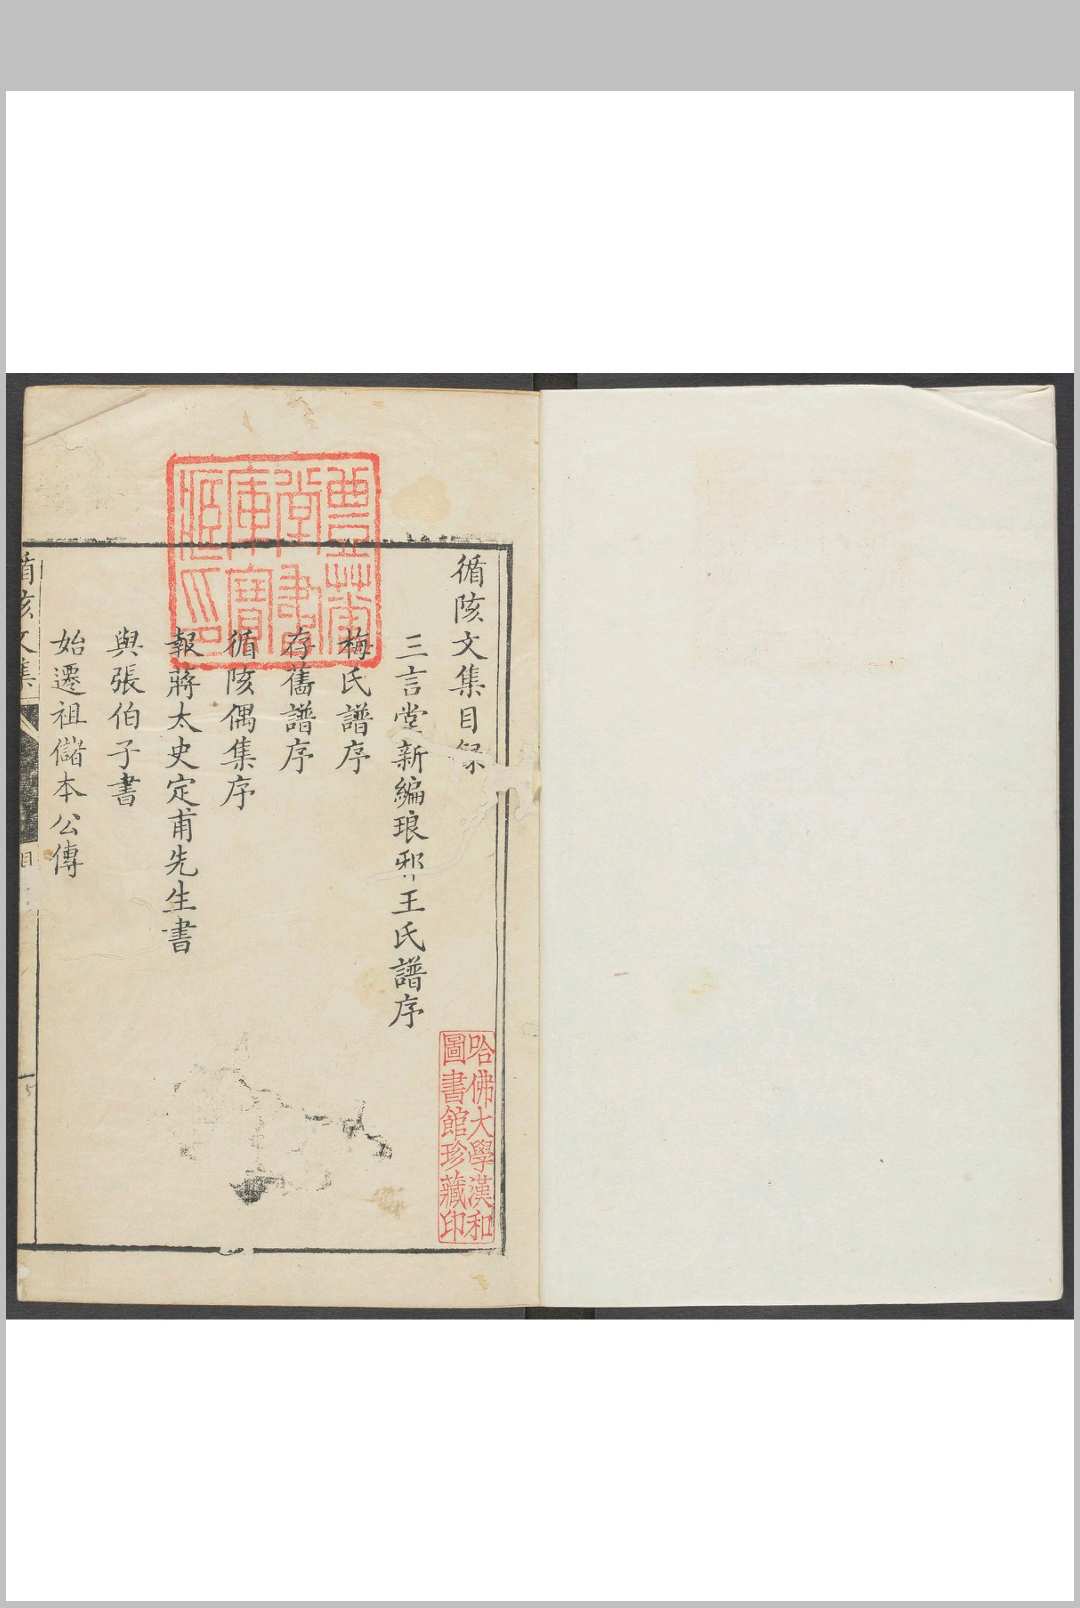 循陔文集目録
三言堂新編琅邪王氏譜序
梅氏譜序
存舊譜序
循陔偶集序
報蔣太史定甫先生書
與張伯子書
始遷祖儲本公傳
循陔文集
目
豐華
堂書
庫寶
藏印
哈佛大學漢和
圖書館珍藏印